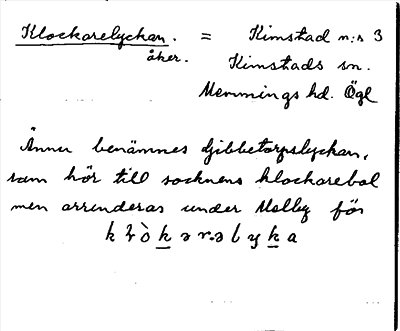 Klockarelyckan. = Kimstad n:r 3
åker. Kimstads sn.
Memmings hd. Ögl
Ännu benämnes Gibbetorpslyckan,
som hör till socknens klockarebol
men arrenderas under Melby för
k l ò k ə r ə l y k a